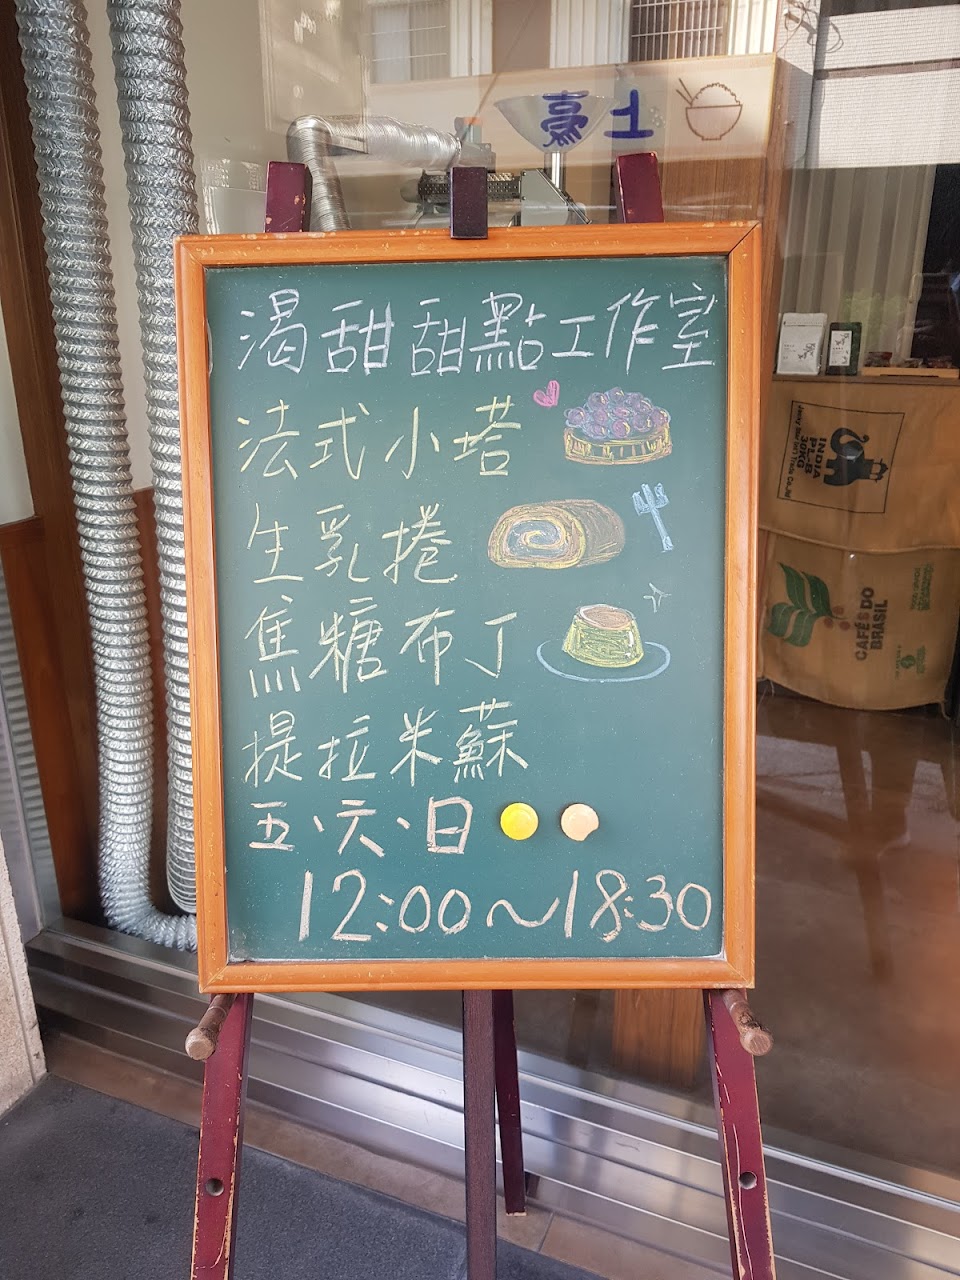 土豪
渴甜甜點工作室
法式小塔
生乳捲
焦糖布丁
提拉米蘇
五、六、日
12:00～18:30
INDIA
PL-B
30KG
CAFÉS DO
BRASIL